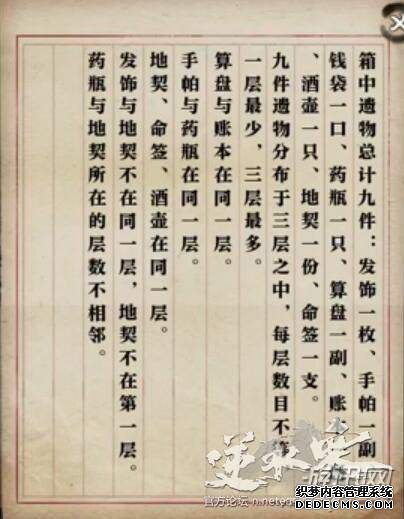 箱中遗物总计九件：发饰一枚、手帕一副
钱袋一口、药瓶一只、算盘一副、账
、酒壶一只、地契一份、命签一支。
九件遗物分布于三层之中，每层数目不
一层最少，三层最多。
算盘与账本在同一层。
手帕与药瓶在同一层。
地契、命签、酒壶在同一层。
发饰与地契不在同一层，地契不在第一层。
药瓶与地契所在的层数不相邻。
逆水寒
官方论坛
织梦内容管理系统
DEDECMS.COM